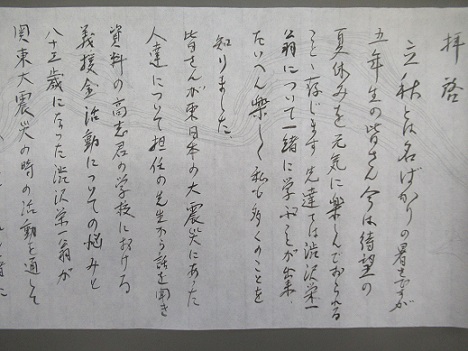 拝啓
立秋とは名ばかりの暑さですが
五年生の皆さん今は待望の
夏休みを元気に楽しんでおられる
ことゝ存じます 先達ては渋沢栄一
翁について一緒に学ぶことが出来
たいへん楽しく私も多くのことを
知りました.
皆さんが東日本の大震災にあった
人達について担任の先生から話を聞き
資料の高志君の学校における
義援金活動についての悩みと
八十三歳になった渋沢栄一翁が
関東大震災の時の活動を通して